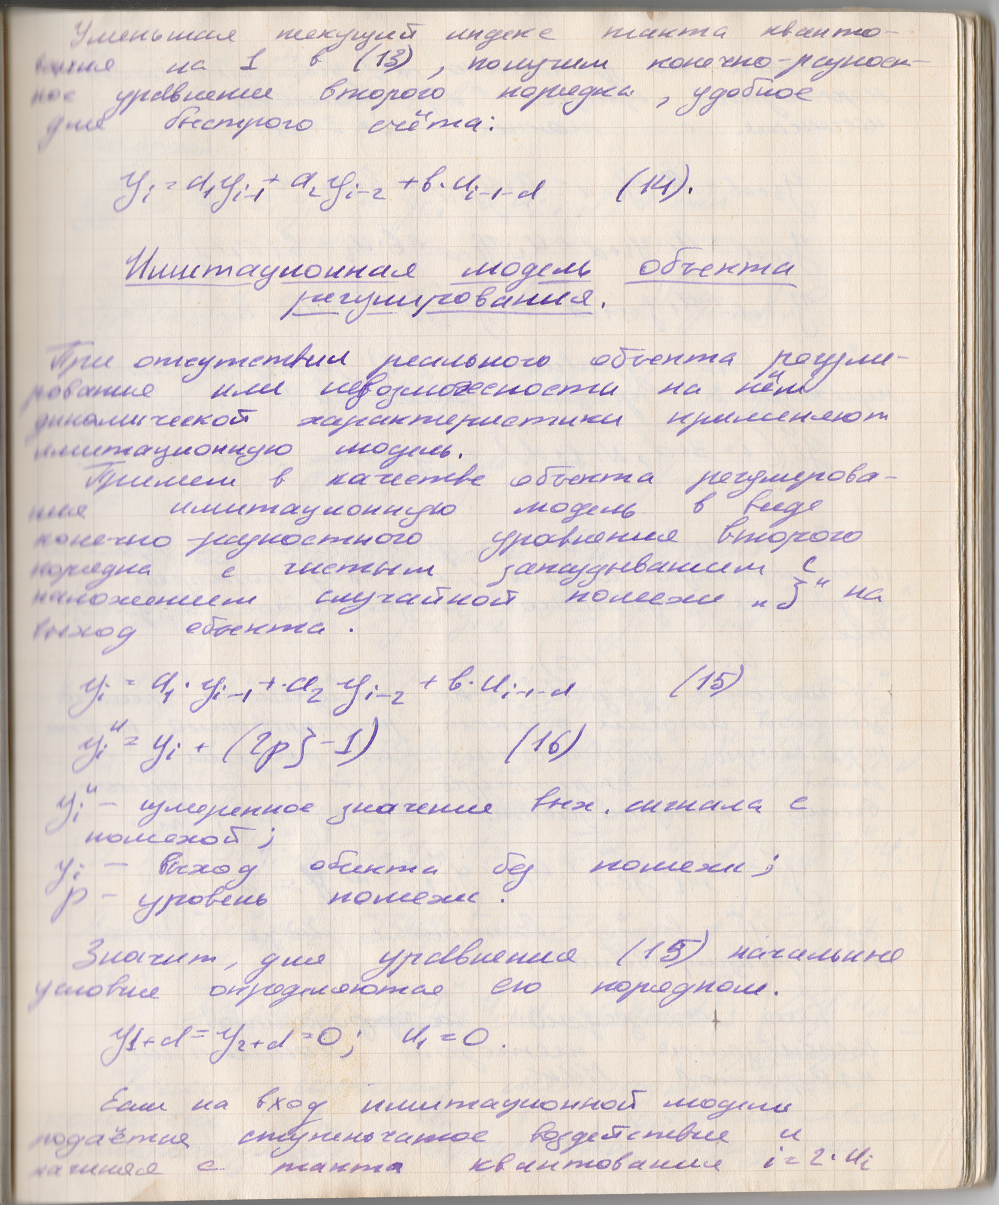 Уменьшая текущий индекс такта кванто-
вания на 1 в (13), получим конечно-разност-
ное уравнение второго порядка, удобное
для быстрого счёта:
yᵢ = a₁yᵢ₋₁ + a₂yᵢ₋₂ + в·uᵢ₋₁₋d (14).
Имитационная модель объекта
регулирования.
При отсутствии реального объекта регули-
рования или невозможности на нём
динамической характеристики применяют
имитационную модель.
Примем в качестве объекта регулирова-
ния имитационную модель в виде
конечно-разностного уравнения второго
порядка с чистым запаздыванием с
наложением случайной помехи „ξ" на
выход объекта.
yᵢ = a₁·yᵢ₋₁ + a₂·yᵢ₋₂ + в·uᵢ₋₁₋d (15)
yᵢᵘ = yᵢ + (2pξ-1) (16)
yᵢᵘ – измеренное значение вых. сигнала с
помехой;
yᵢ – выход объекта без помехи;
p – уровень помехи.
Значит, для уравнения (15) начальные
условия определяются его порядком.
y₁₊d = y₂₊d = 0; u₁ = 0.
Если на вход имитационной модели
подаётся ступенчатое воздействие и
начиная с такта квантования i=2·uᵢ